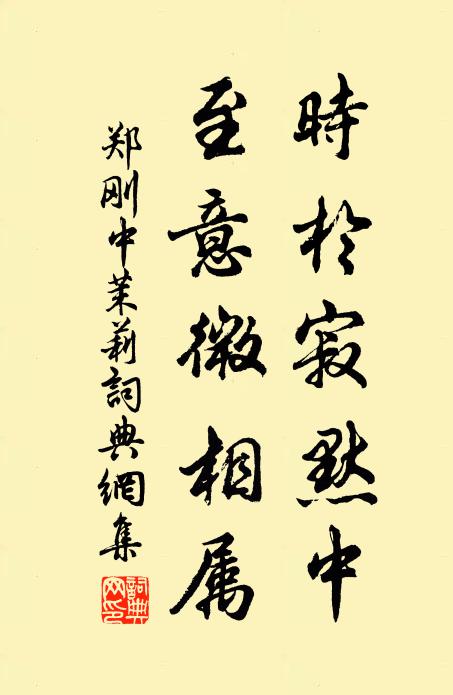 時於寂默中
至意微相属
郑刚中茉莉詞典網集
詞典网印